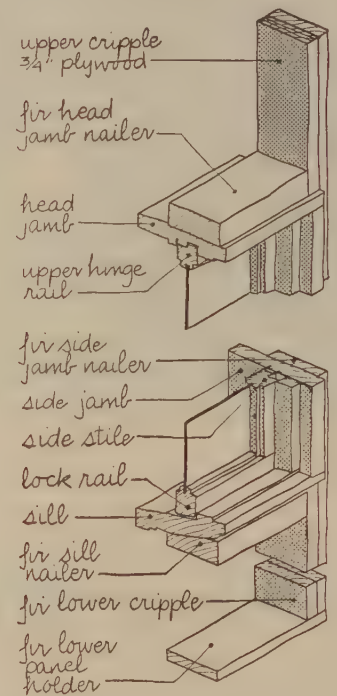 upper cripple
3/4" plywood
fir head
jamb nailer
head
jamb
upper hinge
rail
fir side
jamb nailer
side jamb
side stile
lock rail
sill
fir sill
nailer
fir lower cripple
fir lower
panel
holder